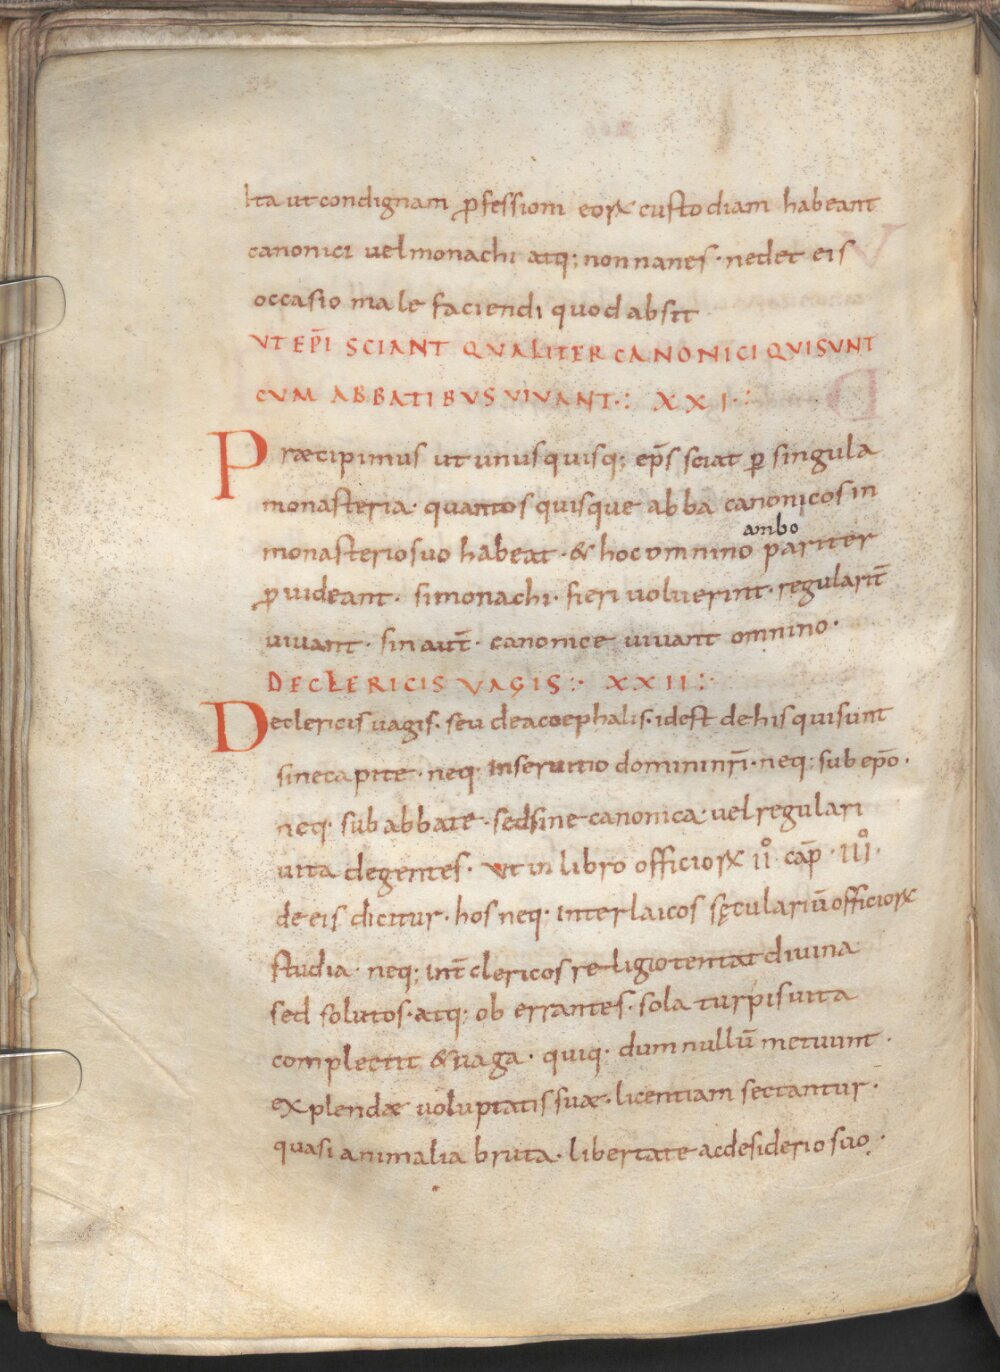 Ita ut condignam ꝓfessioni eoꝝ custodiam habeant
canonici vel monachi atq; nonnanes · ne det eis
occasio male faciendi quod absit
UT EP̄I SCIANT QUALITER CANONICI QUI SUNT
CUM ABBATIBUS VIVANT ·: XXI ·:
Præcipimus ut unusquisq; ep̄s sciat ꝑ singula
monasteria · quantos quisque abba canonicos in
ambo
monasterio suo habeat · & hoc omnino pariter
ꝓvideant · si monachi · fieri voluerint · regularit̄
vivant · sin aut̄ · canonice vivant omnino ·
DE CLERICIS VAGIS :· XXII :·
De clericis vagis · seu de acoephalis · id est de his qui sunt
sine capite · neq; in servitio domini nr̄i · neq; sub ep̄o ·
neq; sub abbate · sed sine canonica · vel regulari
vita degentes · ut in libro officioꝝ IIº cap̄ · IIIº ·
de eis dicitur · hos neq; inter laicos sęculariū officioꝝ
studia · neq; int̄ clericos religio tentat divina
sed solutos · atq; oberrantes · sola turpis vita
complectit & vaga · quiq; dum nullū metuunt ·
explendæ voluptatis suæ · licentiam sectantur ·
quasi animalia bruta · libertate ac desiderio suo ·